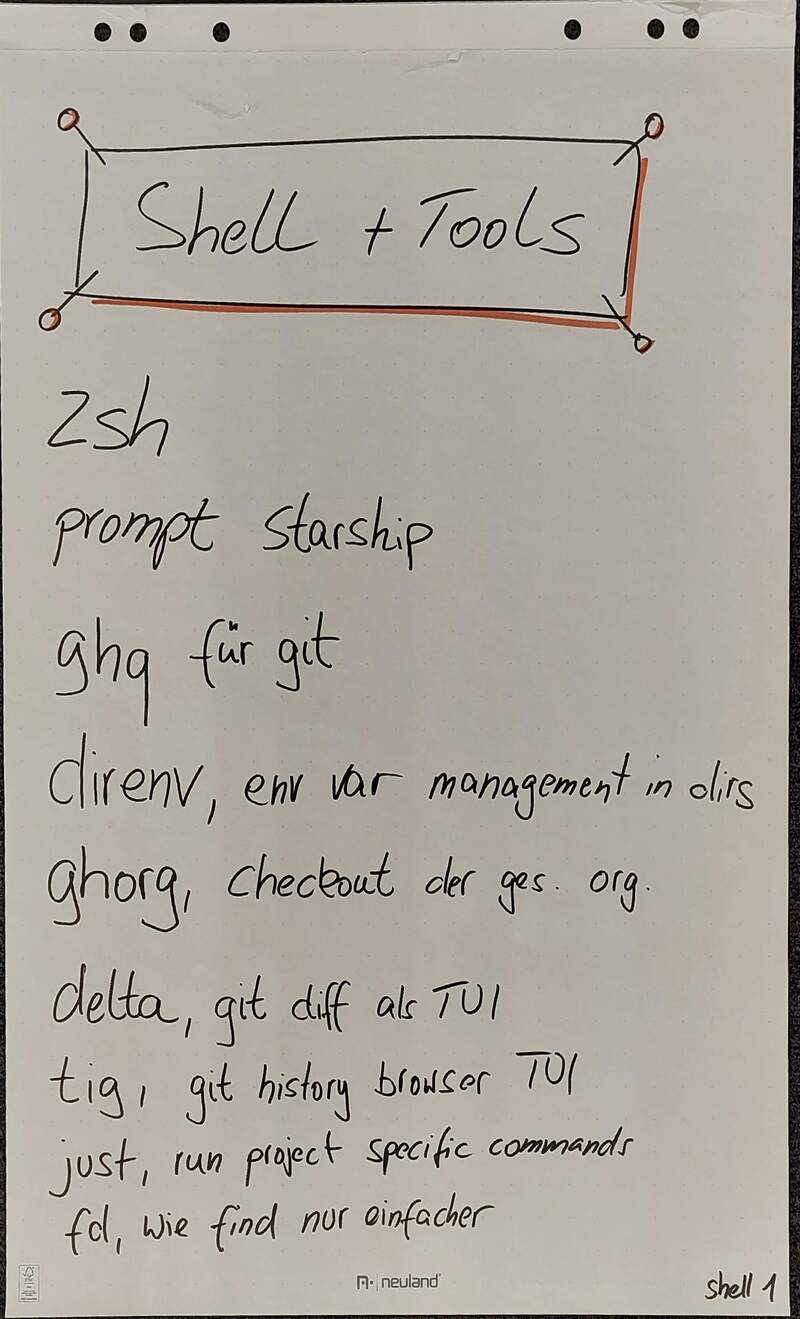 Shell + Tools
zsh
prompt starship
ghq für git
direnv, env var management in dirs
ghorg, checkout der ges. org.
delta, git diff als TUI
tig, git history browser TUI
just, run project specific commands
fd, wie find nur einfacher
neuland
shell 1